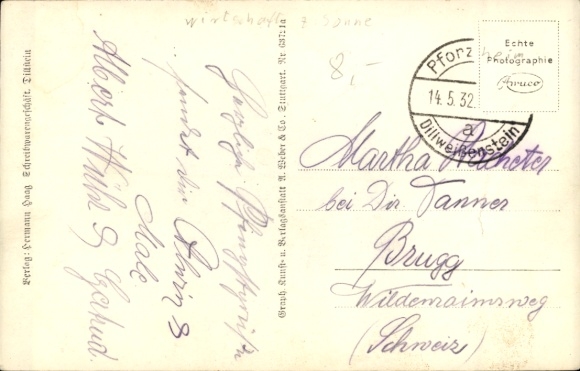 wirtschaft z Sonne
8,-
Echte
Photographie
Awuco
Pforzheim
14.5.32.
a
Dillweißenstein
Martha
bei Dir Tanner
Brugg
Wildenrainsweg
(Schweiz)
Herzliche Pfingstgrüße
sendet dir
Male
Albert
Graph. Kunst- u. Verlagsanstalt A. Weber & Co. Stuttgart. Nr.
Verlag: Hermann Haag Schreibwarengeschäft. Dillstein